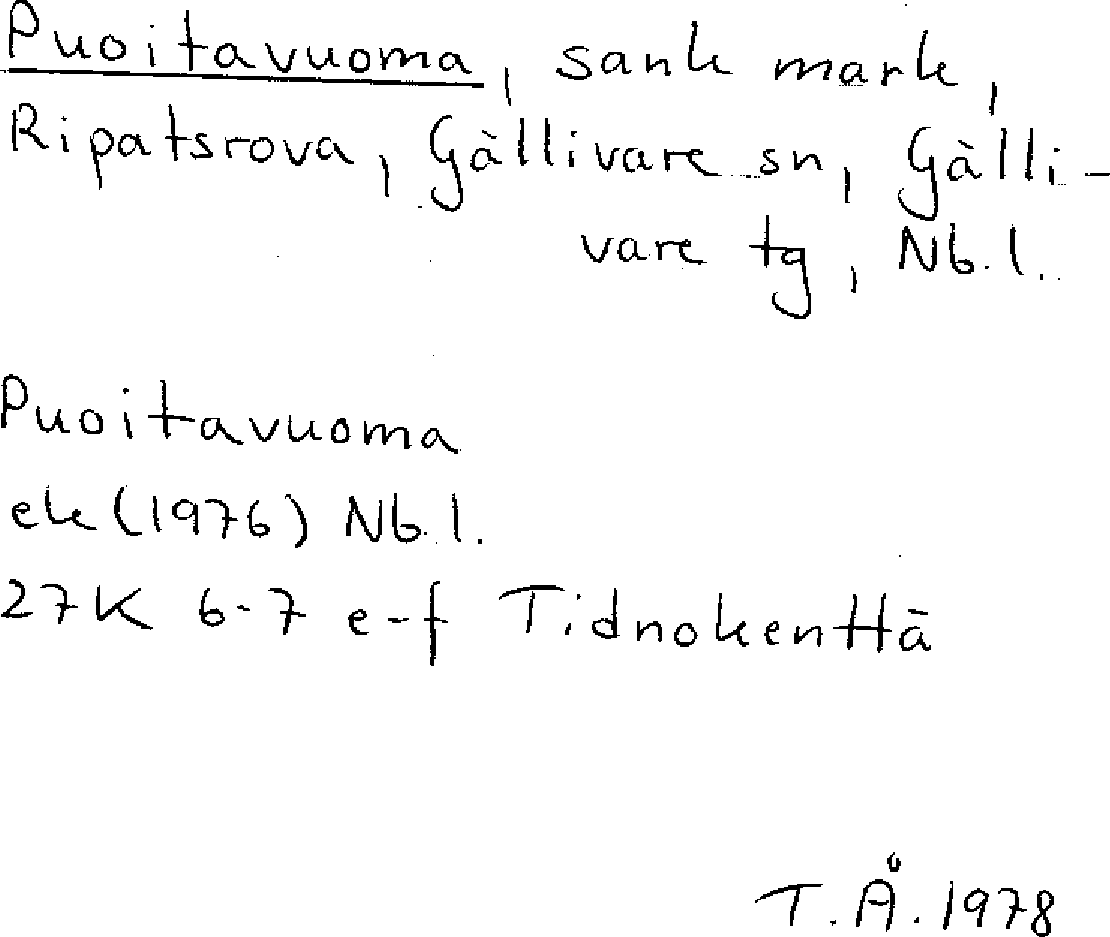 Puoitavuoma, sank mark,
Ripatsrova, Gällivare sn, Gälli-
vare tg, Nb.l.
Puoitavuoma
ek (1976) Nb.l.
27K 6-7 e-f Tidnokenttä
T.Å. 1978